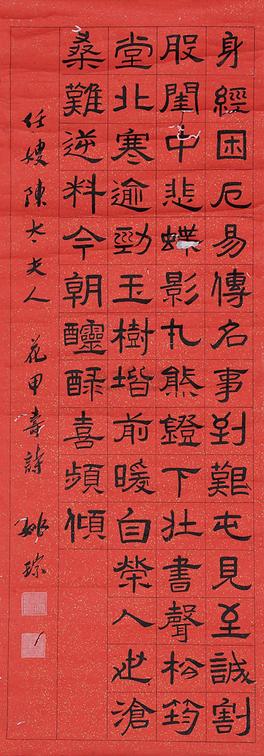 身經困厄易傳名事到艱屯見至誠割
股閨中悲蝶影九熊鐙下壯書聲松筠
堂北寒逾勁玉樹堦前暖自榮人世滄
桑難逆料今朝醽醁喜頻傾
任嫂陳太夫人 花甲壽詩 姚琮